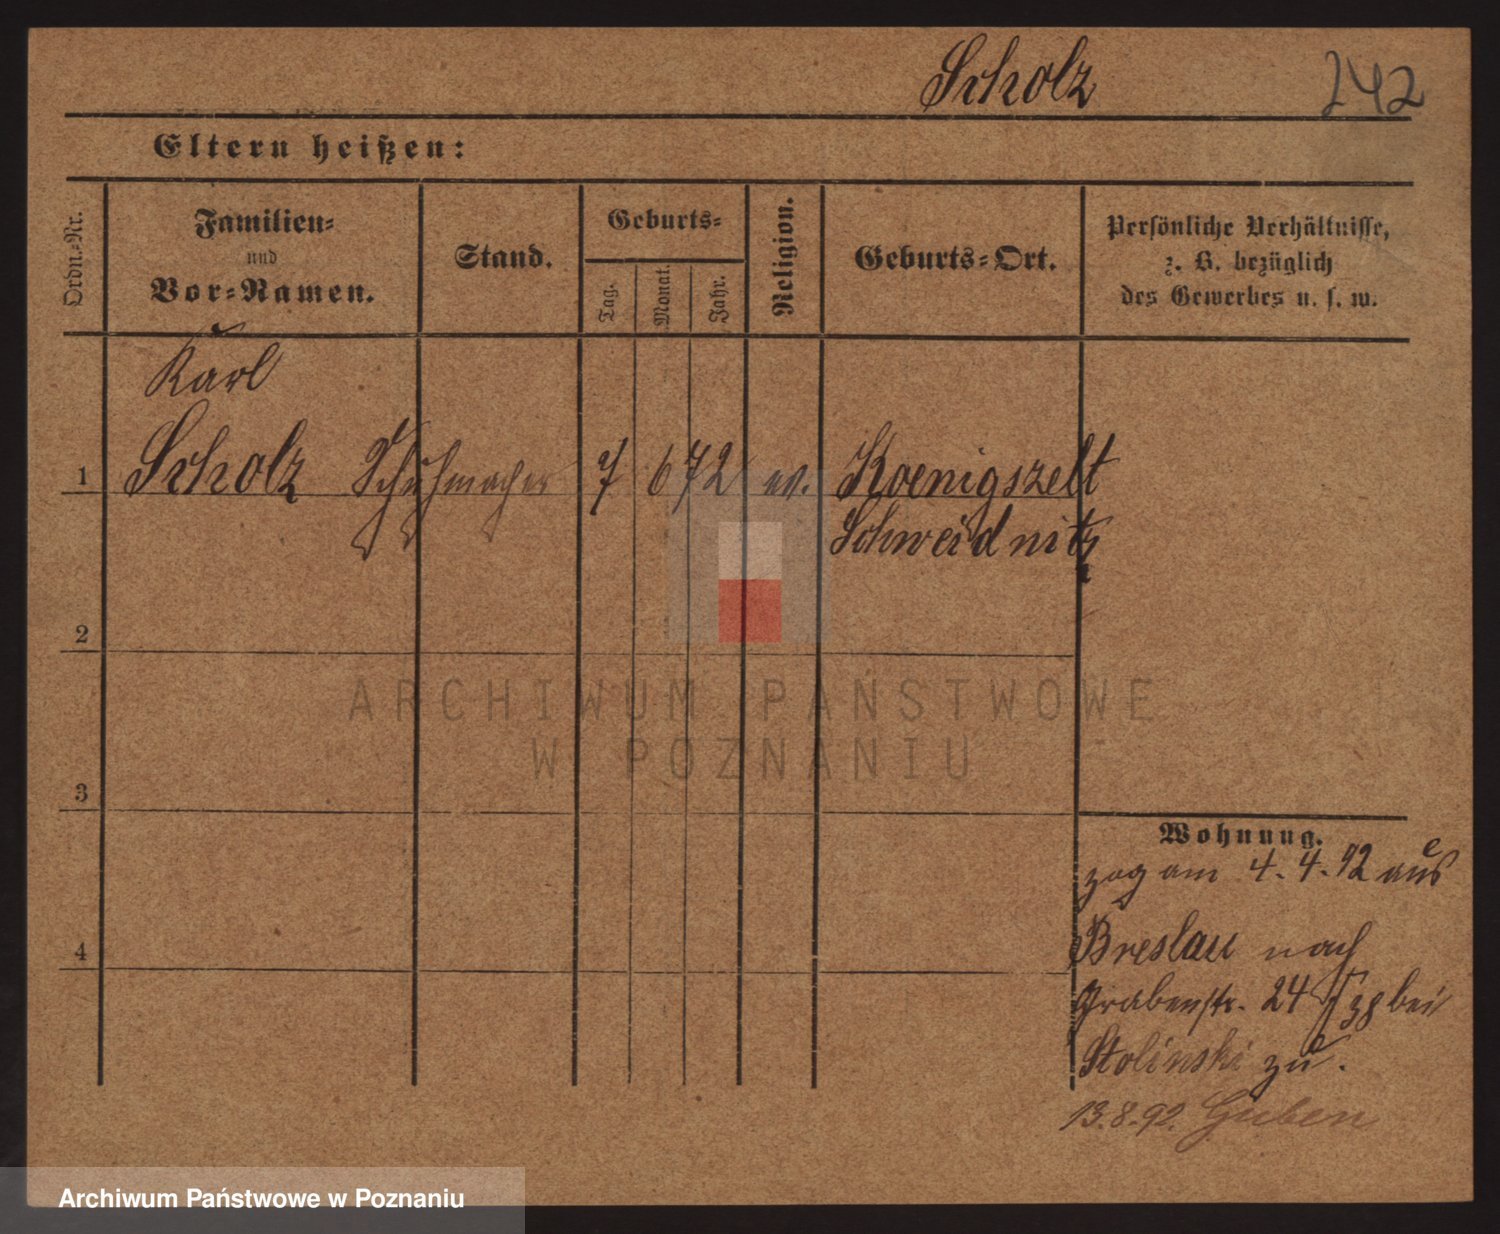 Scholz 242
Eltern heißen:
Ordn.-Nr.
Familien-
und
Vor-Namen.
Stand.
Geburts-
Tag.
Monat.
Jahr.
Religion.
Geburts-Ort.
Persönliche Verhältnisse,
z. B. bezüglich
des Gewerbes u. s. w.
Karl
1 Scholz Schuhmacher 7 6 72 ev. Koenigszelt
Schweidnitz
2
3
4
Wohnung.
zog am 4. 4. 92 aus
Breslau nach
Grabenstr. 24 bei
Stolinski zu.
13.8.92. Guben
ARCHIWUM PAŃSTWOWE
W POZNANIU
Archiwum Państwowe w Poznaniu